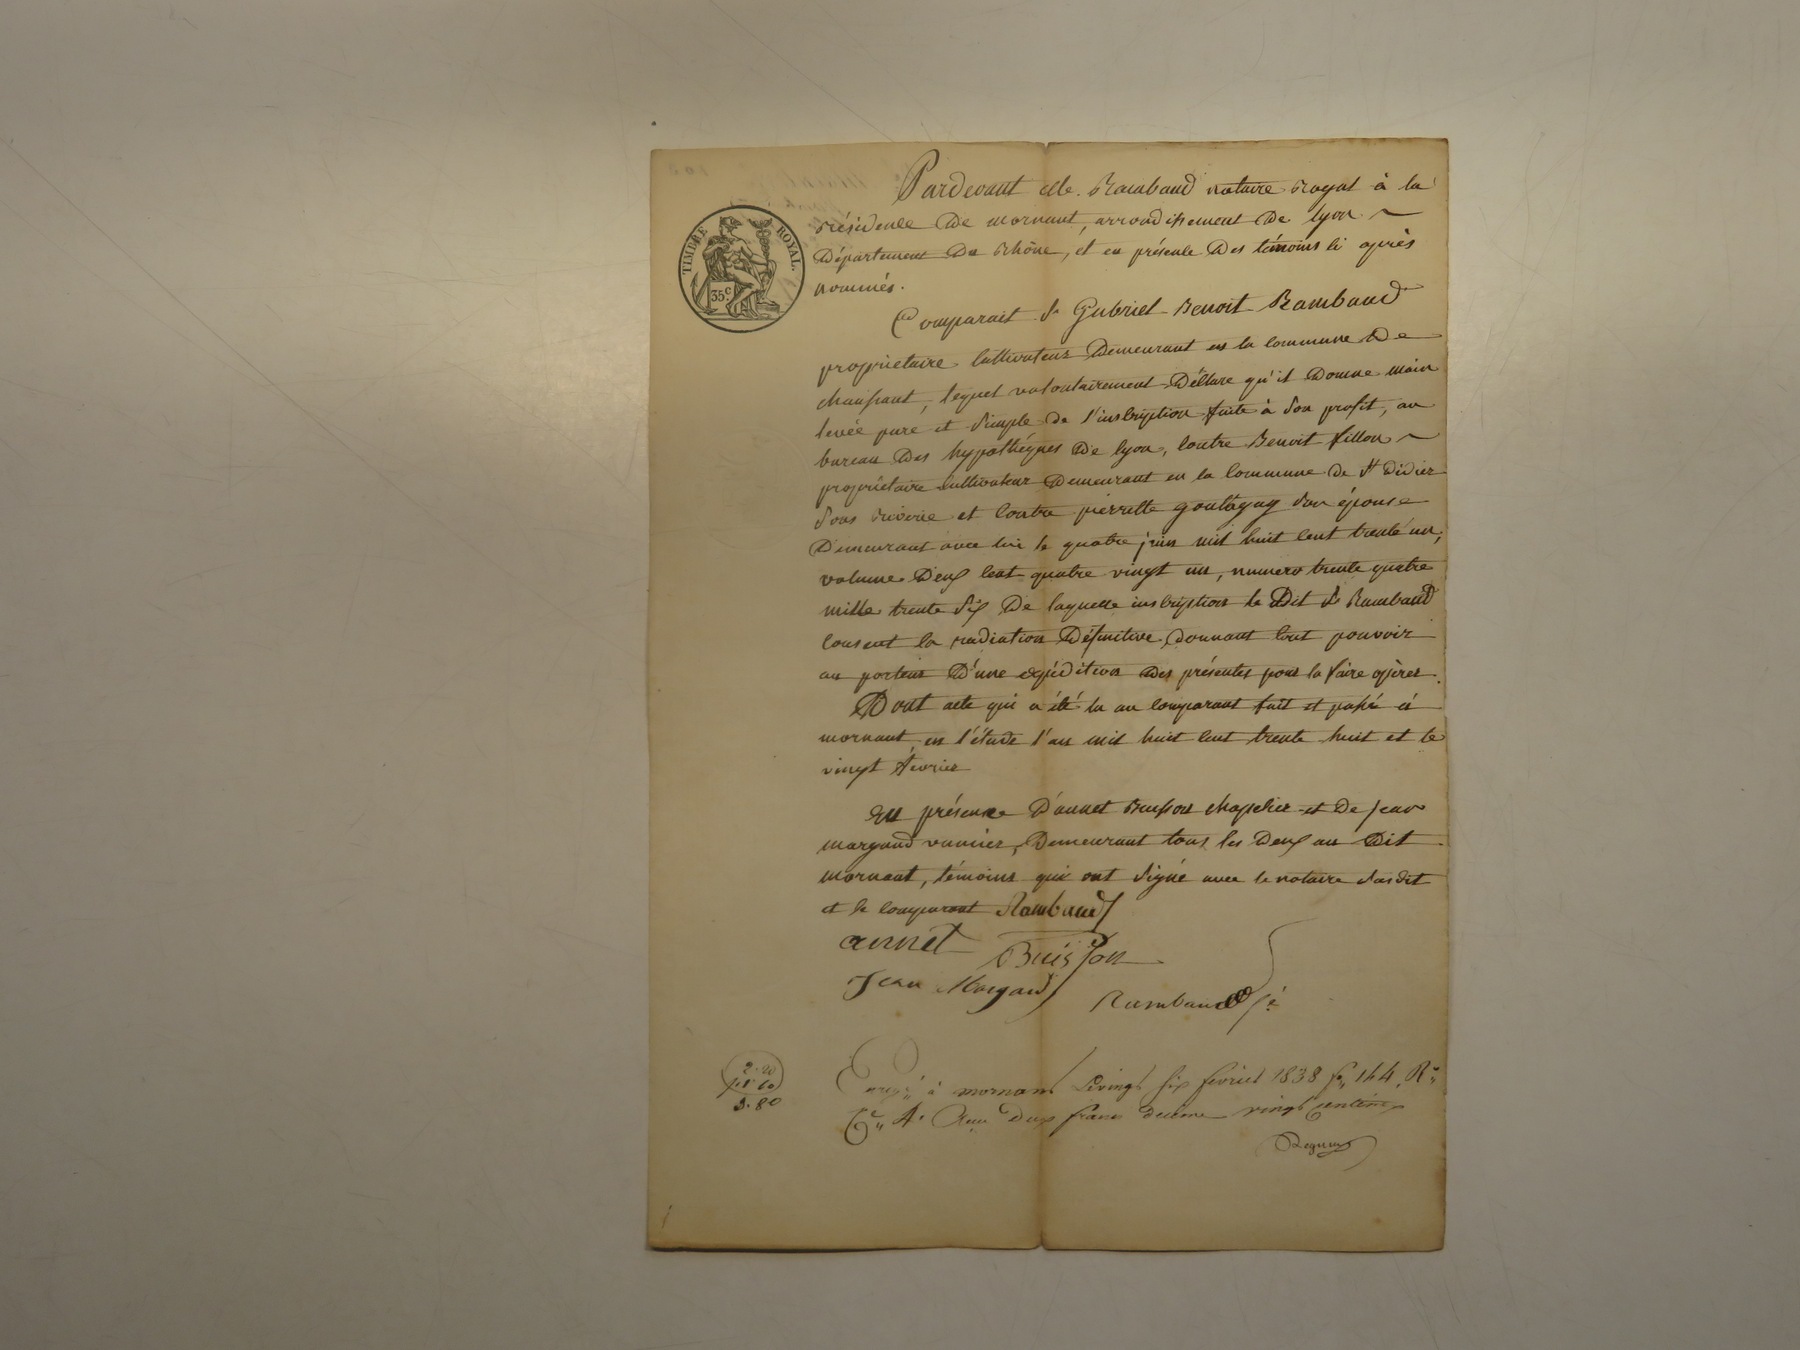 TIMBRE ROYAL.
35 c.
Pardevant Me. Rambaud notaire Royal à la
résidence de mornant, arrondissement de lyon
Département du Rhône, et en présence des témoins ci après
nommés.
Comparait Sr Gabriel Benoit Rambaud
propriétaire cultivateur demeurant en la commune de
chaussant, lequel volontairement déclare qu'il donne main
levée pure et simple de l'inscription faite à son profit, au
bureau des hypothéques de lyon, contre Benoit fillon
propriétaire cultivateur demeurant en la commune de St didier
sous riverie et contre pierrette goutagny son épouse
demeurant avec lui le quatre juin mil huit cent trente un,
volume deux cent quatre vingt un, numero trente quatre
mille trente six de laquelle inscription le dit Sr Rambaud
consent la radiation définitive, donnant tout pouvoir
au porteur d'une expédition des présentes pour la faire opérer.
Dont acte qui a été lu au comparant fait et passé à
mornant, en l'étude l'an mil huit cent trente huit et le
vingt fevrier
En présence d'annet Buisson chapelier et de jean
margand vannier, demeurant tous les deux au dit
mornant, témoins qui ont signé avec le notaire susdit
et le comparant Rambaud
annet Buisson
Jean Margand
Rambaud
2.20
1.60
3.80
à mornant le vingt six fevrier 1838 fo 144. Ro
Ce 4. Reçu deux francs decime vingt centimes